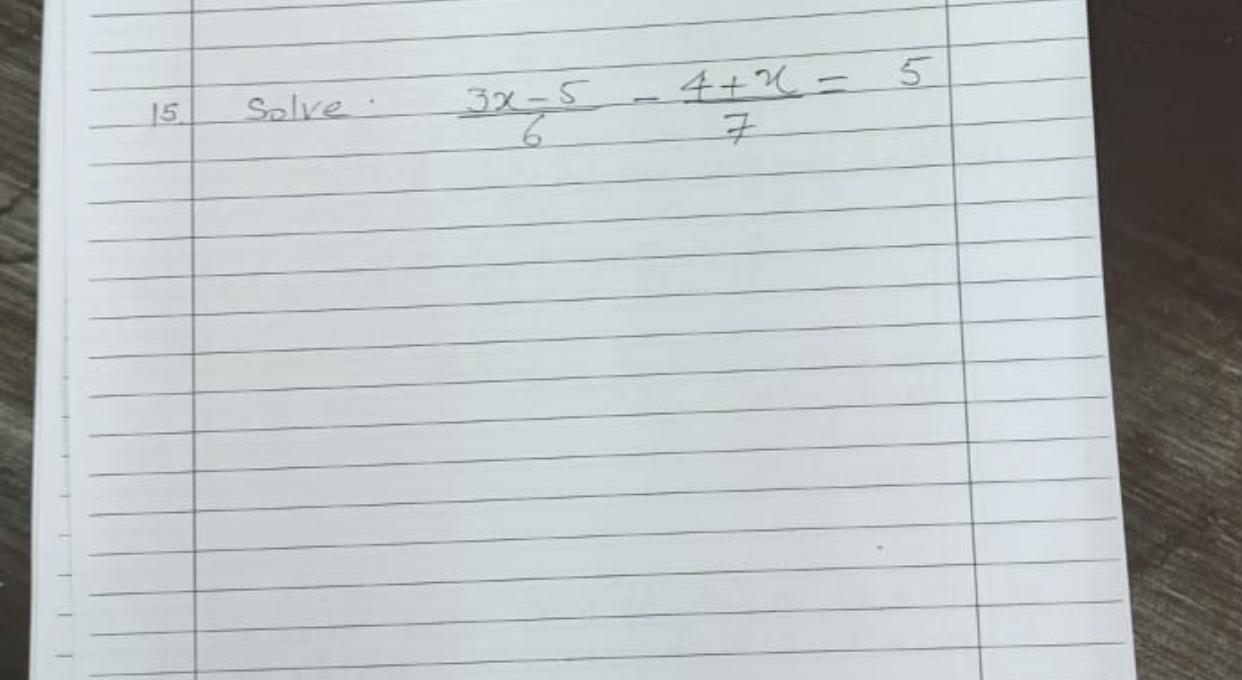 15. Solve: (3x-5)/6 - (4+x)/7 = 5